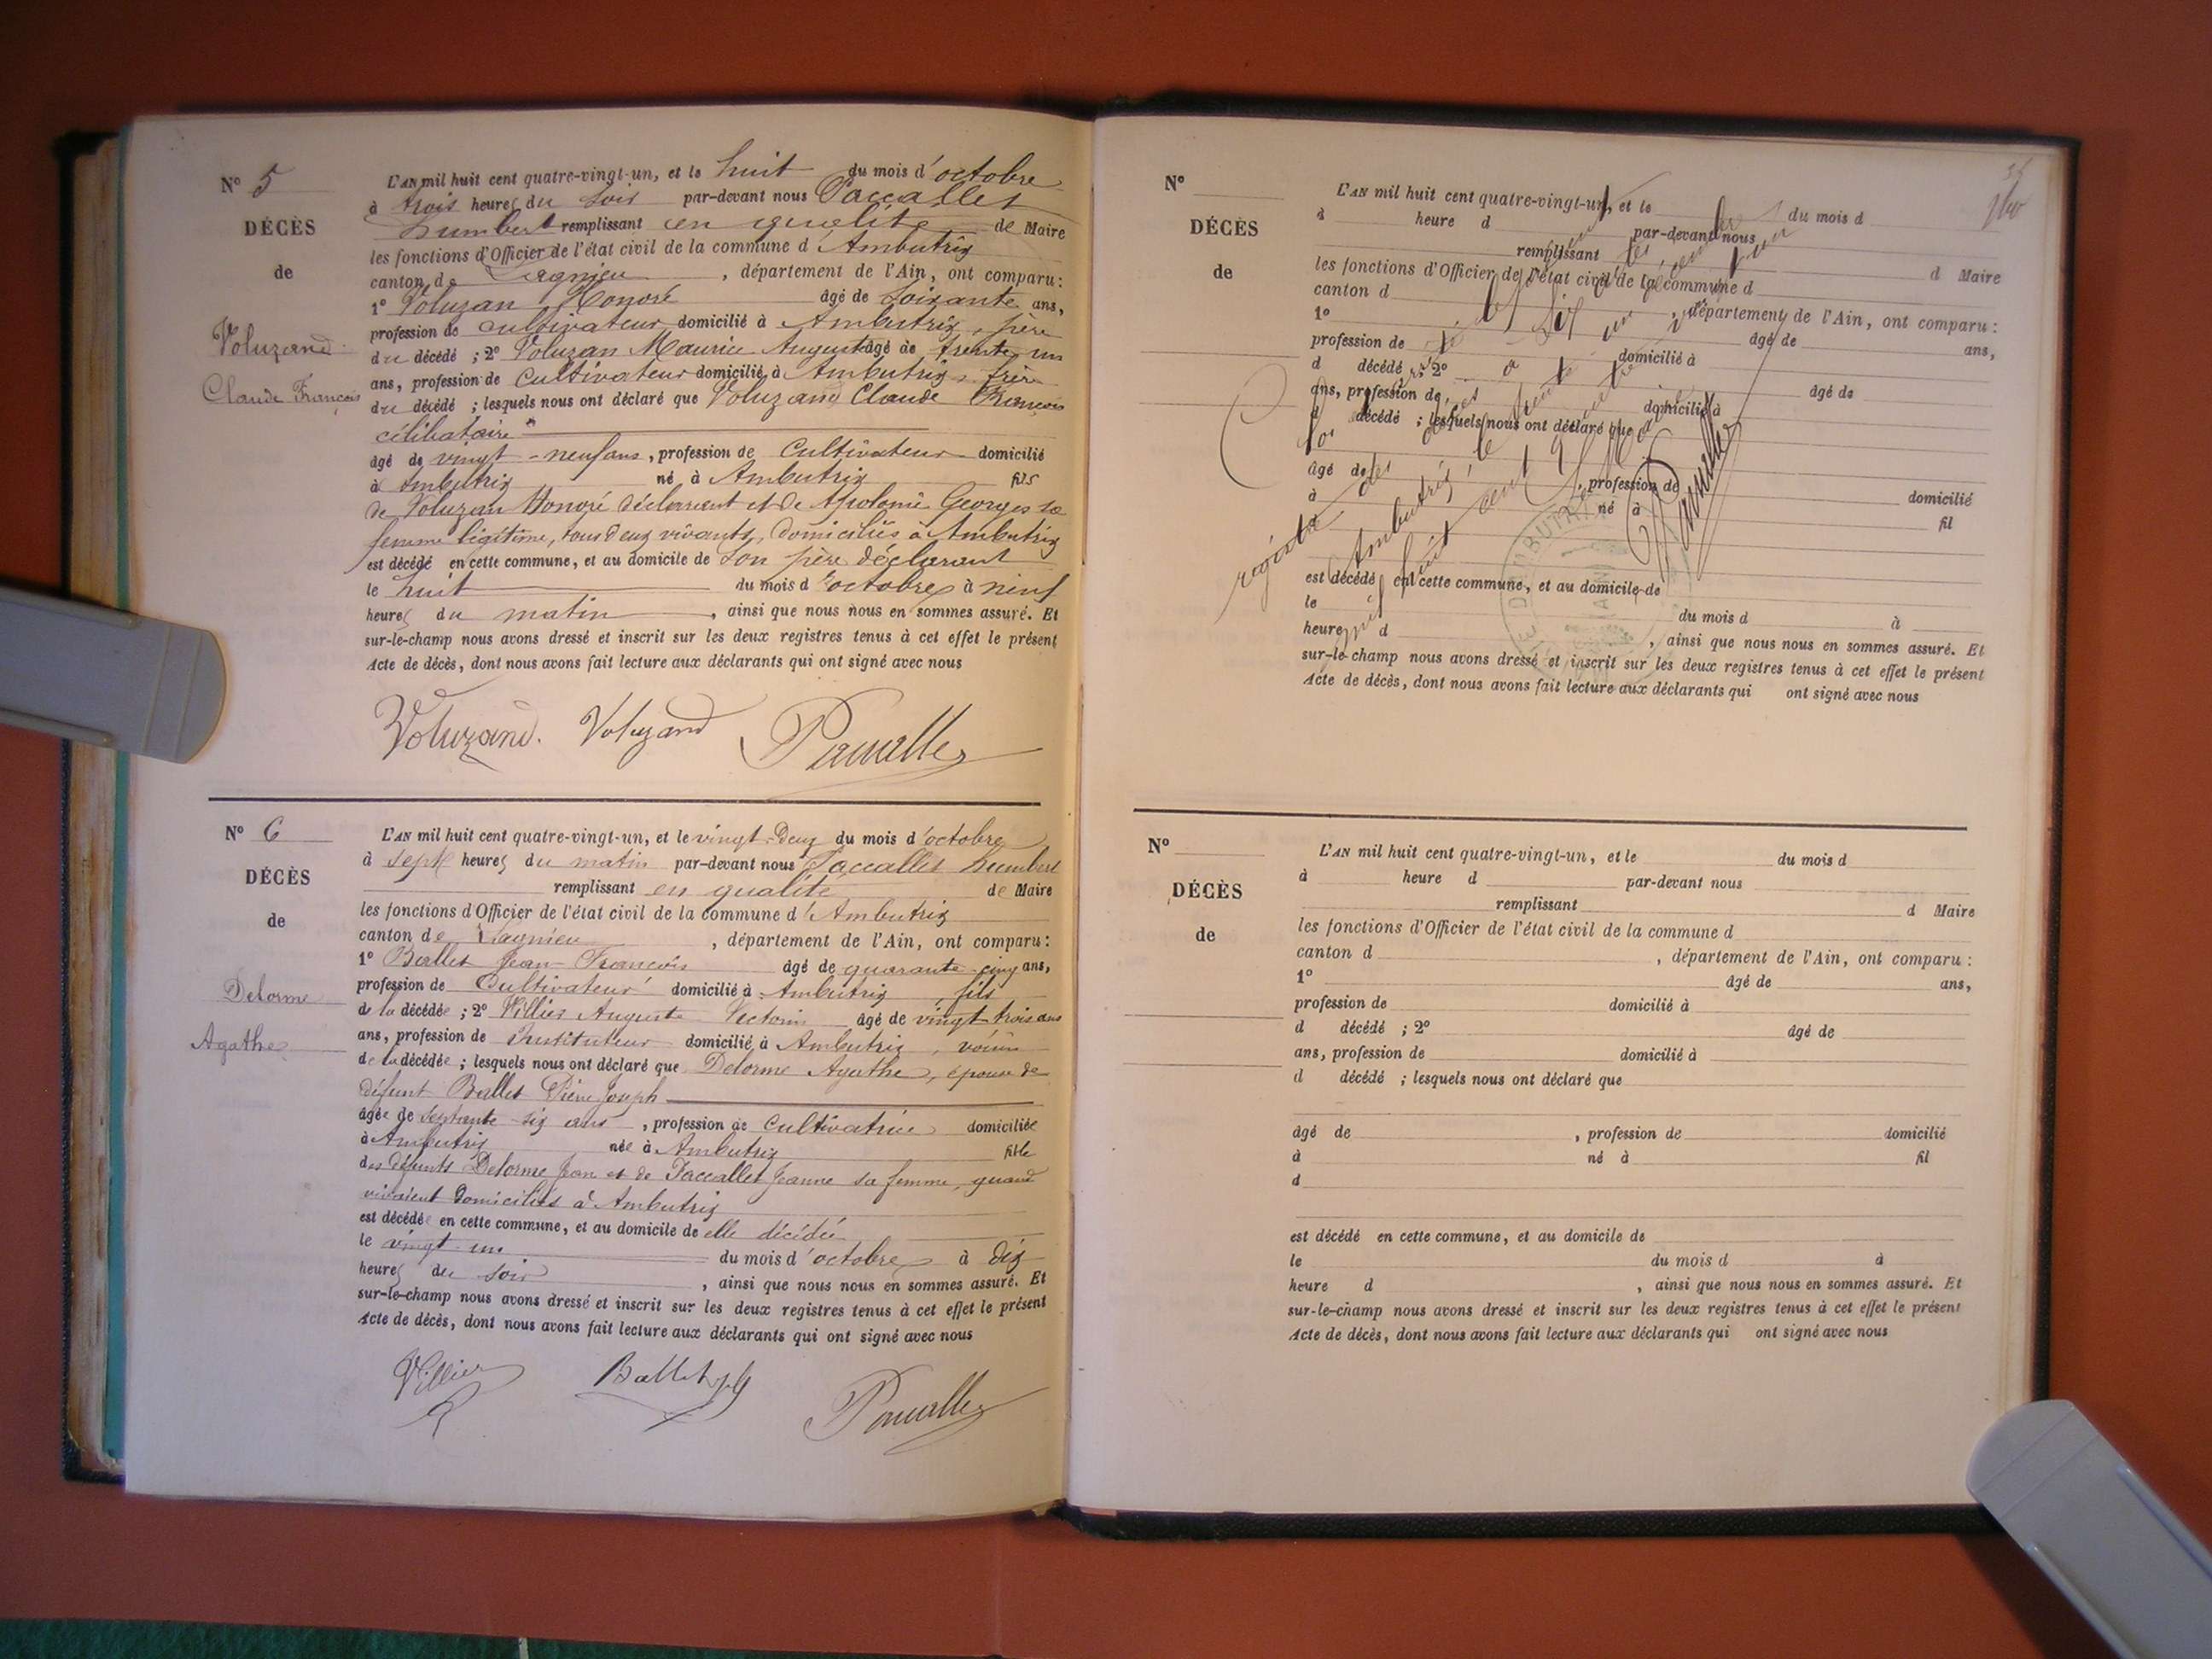 N° 5
DÉCÈS
de
Voluzand
Claude François
L'AN mil huit cent quatre-vingt-un, et le huit du mois d'octobre
à trois heures du soir par-devant nous Paccallet
humbert remplissant en qualité de Maire
les fonctions d'Officier de l'état civil de la commune d'Ambutrix
canton de Lagnieu, département de l'Ain, ont comparu:
1° Voluzan Honoré âgé de soixante ans,
profession de cultivateur domicilié à Ambutrix, père
du décédé ; 2° Voluzan Maurice August âgé de trente un
ans, profession de cultivateur domicilié à Ambutrix, frère
du décédé ; lesquels nous ont déclaré que Voluzand Claude François
célibataire
âgé de vingt-neuf ans, profession de Cultivateur domicilié
à Ambutrix né à Ambutrix fils
de Voluzan Honoré déclarant et de Apolonie Georges sa
femme légitime, tous deux vivants, domiciliés à Ambutrix
est décédé en cette commune, et au domicile de son père déclarant
le huit du mois d'octobre à neuf
heures du matin, ainsi que nous nous en sommes assuré. Et
sur-le-champ nous avons dressé et inscrit sur les deux registres tenus à cet effet le présent
Acte de décès, dont nous avons fait lecture aux déclarants qui ont signé avec nous
Voluzand. Voluzand Paccallet
N° 6
DÉCÈS
de
Delorme
Agathe
L'AN mil huit cent quatre-vingt-un, et le vingt-deux du mois d'octobre
à sept heures du matin par-devant nous Paccallet humbert
remplissant en qualité de Maire
les fonctions d'Officier de l'état civil de la commune d'Ambutrix
canton de Lagnieu, département de l'Ain, ont comparu:
1° Ballet Jean-François âgé de quarante-cinq ans,
profession de Cultivateur domicilié à Ambutrix, fils
de la décédée ; 2° Villier Auguste Victorin âgé de vingt trois ans
ans, profession de Instituteur domicilié à Ambutrix, voisin
de la décédée ; lesquels nous ont déclaré que Delorme Agathe, épouse de
défunt Ballet Pierre Joseph
âgée de septante-six ans, profession de Cultivatrice domiciliée
à Ambutrix née à Ambutrix fille
des défunts Delorme Jean et de Paccallet Jeanne sa femme, quand
vivaient domiciliés à Ambutrix
est décédée en cette commune, et au domicile de elle décédée
le vingt-un du mois d'octobre à dix
heures du soir, ainsi que nous nous en sommes assuré. Et
sur-le-champ nous avons dressé et inscrit sur les deux registres tenus à cet effet le présent
Acte de décès, dont nous avons fait lecture aux déclarants qui ont signé avec nous
Villier Ballet Paccallet
N°
DÉCÈS
de
L'AN mil huit cent quatre-vingt-un, et le du mois d
à heure d par-devant nous
remplissant d Maire
les fonctions d'Officier de l'état civil de la commune d
canton d, département de l'Ain, ont comparu:
1° âgé de ans,
profession de domicilié à
d décédé ; 2° âgé de
ans, profession de domicilié à
d décédé ; lesquels nous ont déclaré que
âgé de, profession de domicilié
à né à fil
est décédé en cette commune, et au domicile de
le du mois d à
heure d, ainsi que nous nous en sommes assuré. Et
sur-le-champ nous avons dressé et inscrit sur les deux registres tenus à cet effet le présent
Acte de décès, dont nous avons fait lecture aux déclarants qui ont signé avec nous
registre
Ambutrix
mil huit cent
Paccallet
N°
DÉCÈS
de
L'AN mil huit cent quatre-vingt-un, et le du mois d
à heure d par-devant nous
remplissant d Maire
les fonctions d'Officier de l'état civil de la commune d
canton d, département de l'Ain, ont comparu:
1° âgé de ans,
profession de domicilié à
d décédé ; 2° âgé de
ans, profession de domicilié à
d décédé ; lesquels nous ont déclaré que
âgé de, profession de domicilié
à né à fil
d
est décédé en cette commune, et au domicile de
le du mois d à
heure d, ainsi que nous nous en sommes assuré. Et
sur-le-champ nous avons dressé et inscrit sur les deux registres tenus à cet effet le présent
Acte de décès, dont nous avons fait lecture aux déclarants qui ont signé avec nous